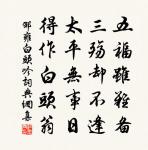 五福雖難備
三殤却不逢
太平無事日
得作白頭翁
邵雍白頭吟詞典網集